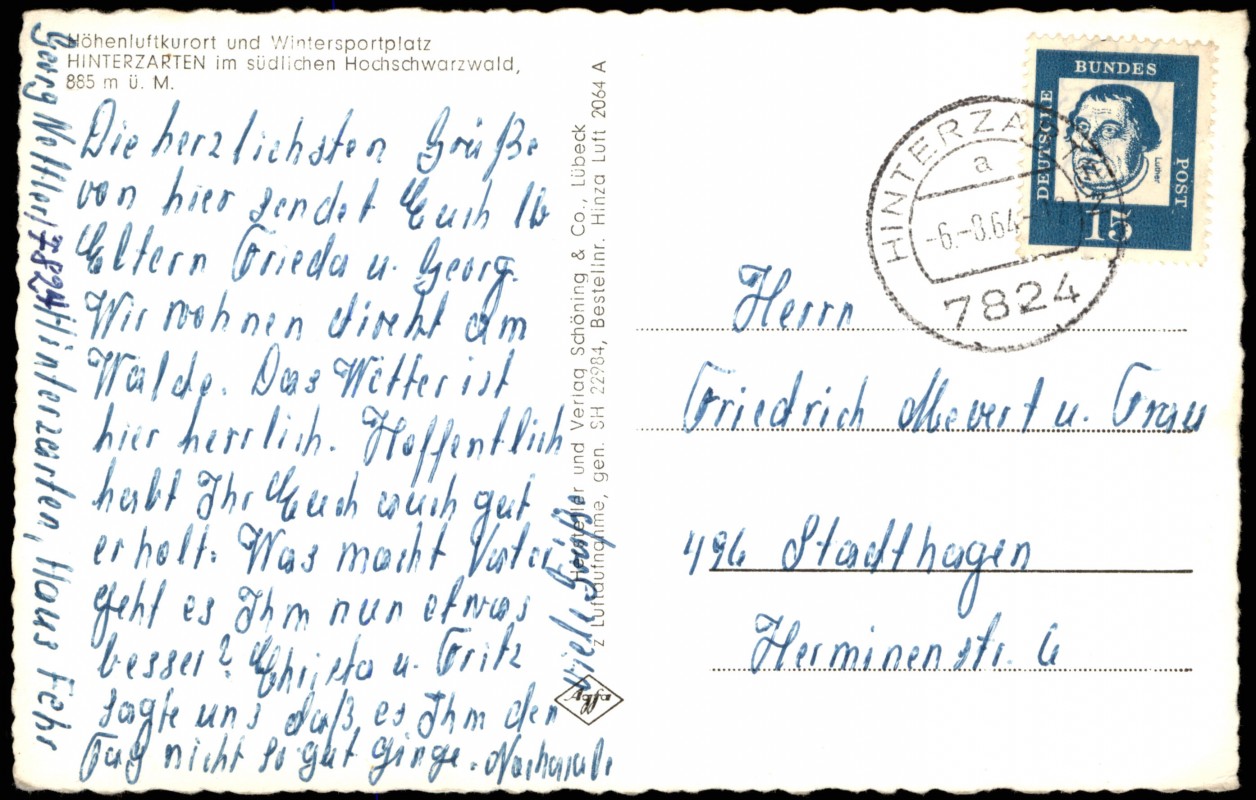 Höhenluftkurort und Wintersportplatz
HINTERZARTEN im südlichen Hochschwarzwald,
885 m ü. M.
Die herzlichsten Grüße
von hier sendet Euch lb
Eltern Frieda u. Georg.
Wir wohnen direkt am
Walde. Das Wetter ist
hier herrlich. Hoffentlich
habt Ihr Euch auch gut
erholt. Was macht Vater
geht es Ihm nun etwas
besser? Christa u. Fritz
sagte uns daß es Ihm den
Tag nicht so gut ginge. Nochmals
viele Grüße
Georg 7824 Hinterzarten, Haus Fehr
Hersteller und Verlag Schöning & Co., Lübeck
z Luftaufnahme, gen. SH 22984, Bestellnr. Hinza Luft 2064 A
agfa
DEUTSCHE
BUNDES
POST
Luther
15
HINTERZARTEN
a
-6.-8.64-
7824
Herrn
Friedrich Mevert u. Frau
496 Stadthagen
Herminenstr. 6